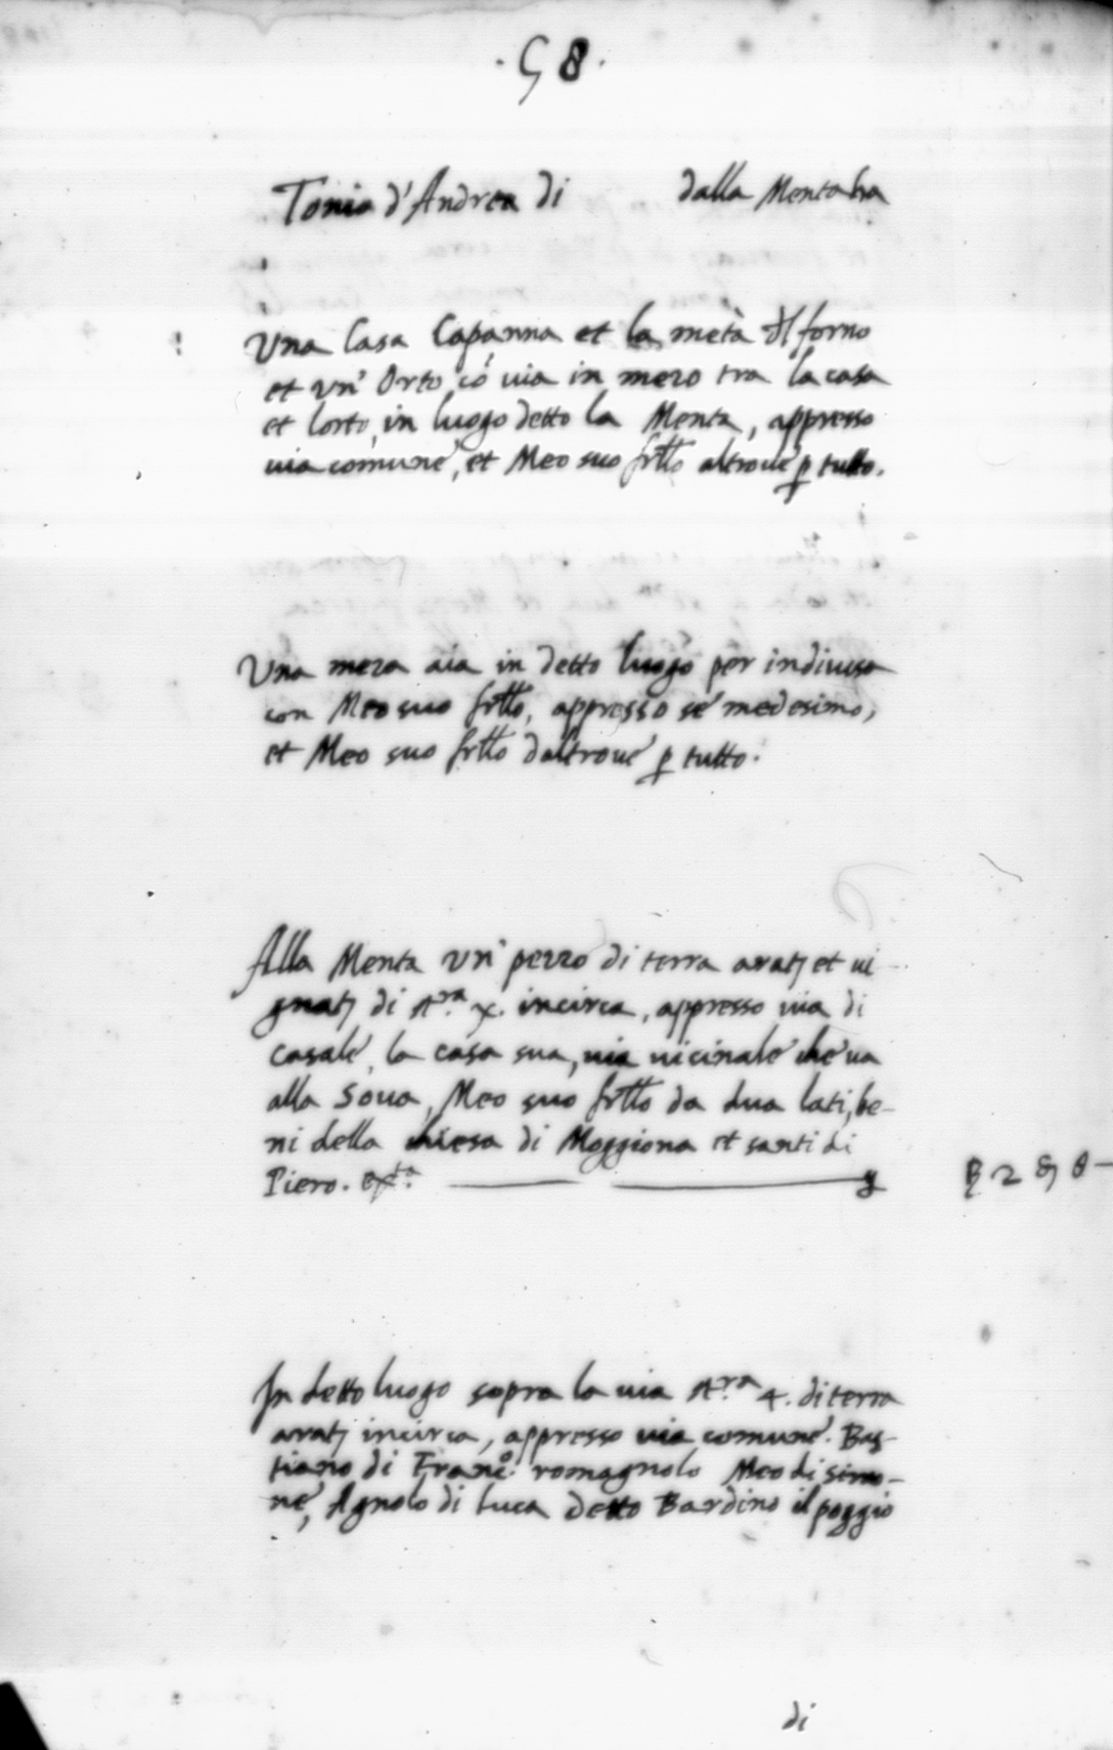 · 58 ·
Tonio d'Andrea di dalla Menta
Una Casa Capanna et la metà dl forno
et un' Orto, có via in mezo tra la casa
et lorto, in luogo detto la Menta, appresso
via comune, et Meo suo frllo altroue p tutto.
Una meza aia in detto luogo per indiviso
con Meo suo frllo, appresso sé medesimo,
et Meo suo frllo daltroue p tutto.
Alla Menta un' pezzo di terra aratj et ui-
gnatj di st.ra x. incirca, appresso via di
casale, la casa sua, via uicinale che ua
alla Soua, Meo suo frllo da dua lati, be-
ni della chiesa di Moggiona et santi di
Piero. exta
In detto luogo sopra la uia st.ra 4. di terra
aratj incirca, appresso uia comune. Bas-
tiano di Franc.o romagnolo Meo di simo-
ne, Agnolo di luca detto Bardino il poggio
di